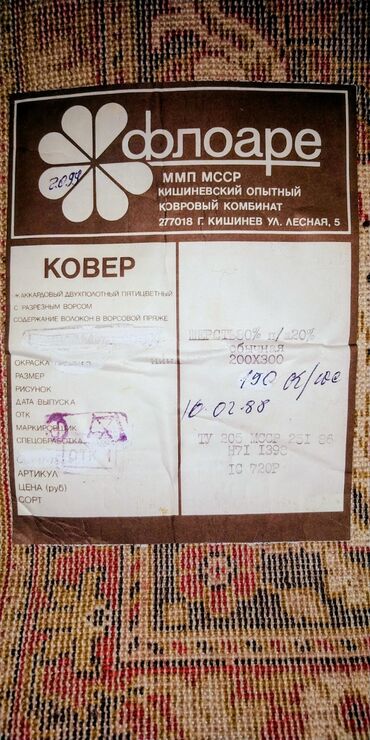 флоаре
2099
ММП МССР
КИШИНЕВСКИЙ ОПЫТНЫЙ
КОВРОВЫЙ КОМБИНАТ
277018 Г. КИШИНЕВ УЛ. ЛЕСНАЯ, 5
КОВЕР
ЖАККАРДОВЫЙ ДВУХПОЛОТНЫЙ ПЯТИЦВЕТНЫЙ
С РАЗРЕЗНЫМ ВОРСОМ
СОДЕРЖАНИЕ ВОЛОКОН В ВОРСОВОЙ ПРЯЖЕ
ШЕРСТЬ 80% п/ш20%
обычная
ОКРАСКА
РАЗМЕР 200Х300
РИСУНОК 190
ДАТА ВЫПУСКА 10.02.88
ОТК
МАРКИРОВЩИК
СПЕЦОБРАБОТКА ТУ 205 МССР 251 86
ОТК 1
Н71 1398
АРТИКУЛ 1С 720Р
ЦЕНА (руб)
СОРТ